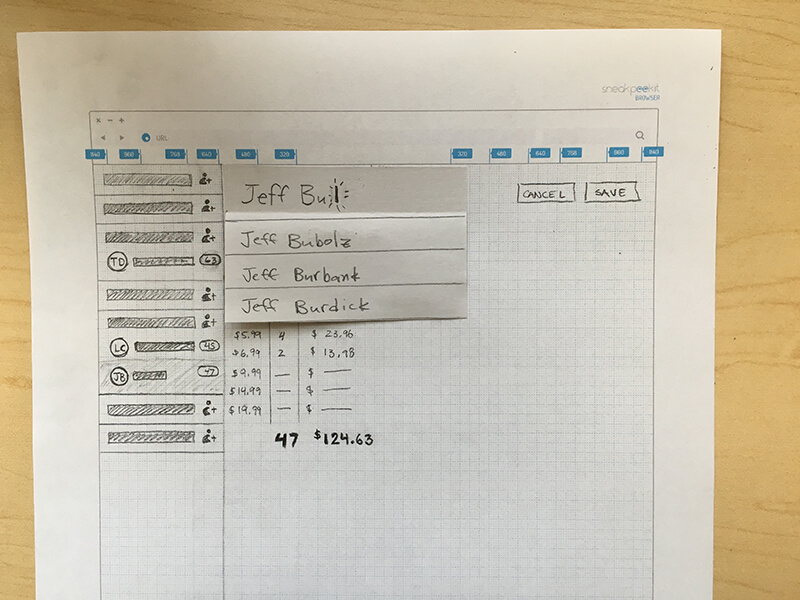 sneakpeekit
BROWSER
URL
840 960 768 640 480 320 320 480 640 768 960 840
Jeff Bu
CANCEL SAVE
Jeff Bubolz
TD 63
Jeff Burbank
Jeff Burdick
$5.99 4 $ 23.96
LC 45 $6.99 2 $ 13.98
JB 47 $9.99 — $ —
$14.99 — $ —
$19.99 — $ —
47 $124.63